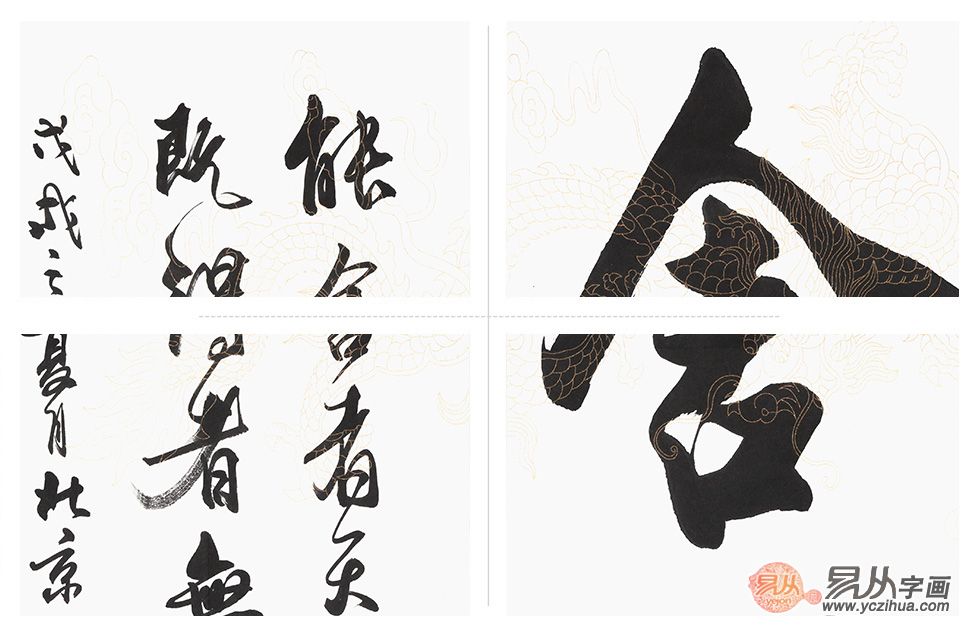 能舍者天
既得者無
戊戌之夏月北京
舍
易从
易从字画
www.yczihua.com